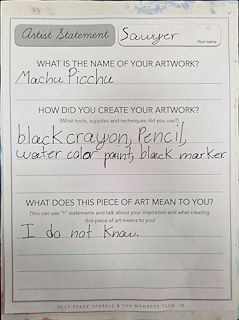 Artist Statement
Sawyer
Your name
WHAT IS THE NAME OF YOUR ARTWORK?
Machu Picchu
HOW DID YOU CREATE YOUR ARTWORK?
(What tools, supplies and techniques did you use?)
black crayon, Pencil,
water color paint, black marker
WHAT DOES THIS PIECE OF ART MEAN TO YOU?
(You can use "I" statements and talk about your inspiration and what creating
this piece of art means to you)
I do not Know.
DEEP SPACE SPARKLE & THE MEMBERS CLUB